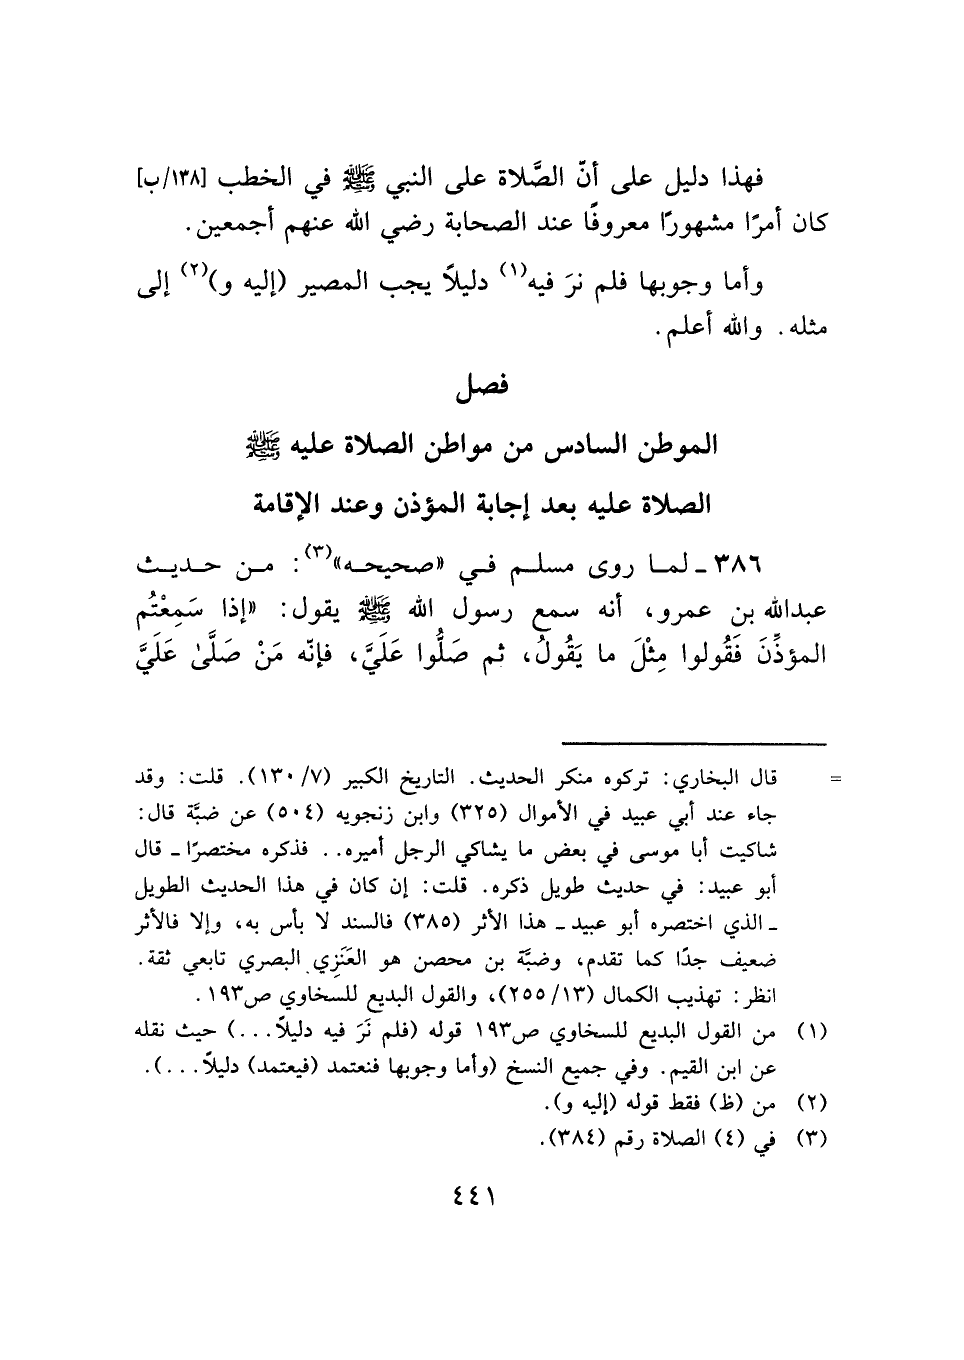 فهذا دليل على أنّ الصَّلاة على النبي ﷺ في الخطب [١٣٨/ب]
كان أمرًا مشهورًا معروفًا عند الصحابة رضي الله عنهم أجمعين.
وأما وجوبها فلم نرَ فيه(١) دليلاً يجب المصير (إليه و)(٢) إلى
مثله. والله أعلم.
فصل
الموطن السادس من مواطن الصلاة عليه ﷺ
الصلاة عليه بعد إجابة المؤذن وعند الإقامة
٣٨٦ ـ لما روى مسلم في «صحيحه»(٣): من حديث
عبدالله بن عمرو، أنه سمع رسول الله ﷺ يقول: «إذا سَمِعْتُم
المؤذِّنَ فَقُولوا مِثْلَ ما يَقُولُ، ثم صَلُّوا عَلَيَّ، فإنّه مَنْ صَلَّىٰ عَلَيَّ
= قال البخاري: تركوه منكر الحديث. التاريخ الكبير (٧/ ١٣٠). قلت: وقد
جاء عند أبي عبيد في الأموال (٣٢٥) وابن زنجويه (٥٠٤) عن ضبَّة قال:
شاكيت أبا موسى في بعض ما يشاكي الرجل أميره.. فذكره مختصرًا ـ قال
أبو عبيد: في حديث طويل ذكره. قلت: إن كان في هذا الحديث الطويل
ـ الذي اختصره أبو عبيد ـ هذا الأثر (٣٨٥) فالسند لا بأس به، وإلا فالأثر
ضعيف جدًا كما تقدم، وضبَّة بن محصن هو العَنَزِي البصري تابعي ثقة.
انظر: تهذيب الكمال (١٣/ ٢٥٥)، والقول البديع للسخاوي ص١٩٣.
(١) من القول البديع للسخاوي ص١٩٣ قوله (فلم نَرَ فيه دليلاً...) حيث نقله
عن ابن القيم. وفي جميع النسخ (وأما وجوبها فنعتمد (فيعتمد) دليلاً...).
(٢) من (ظ) فقط قوله (إليه و).
(٣) في (٤) الصلاة رقم (٣٨٤).
٤٤١